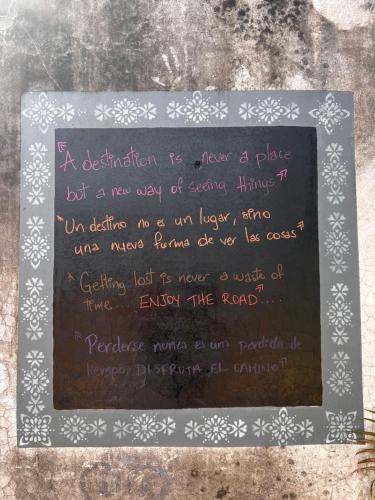 "A destination is never a place
but a new way of seeing things"
"Un destino no es un lugar, sino
una nueva forma de ver las cosas"
"Getting lost is never a waste of
time.... ENJOY THE ROAD"....
"Perderse nunca es una perdida de
tiempo, DISFRUTA EL CAMINO"